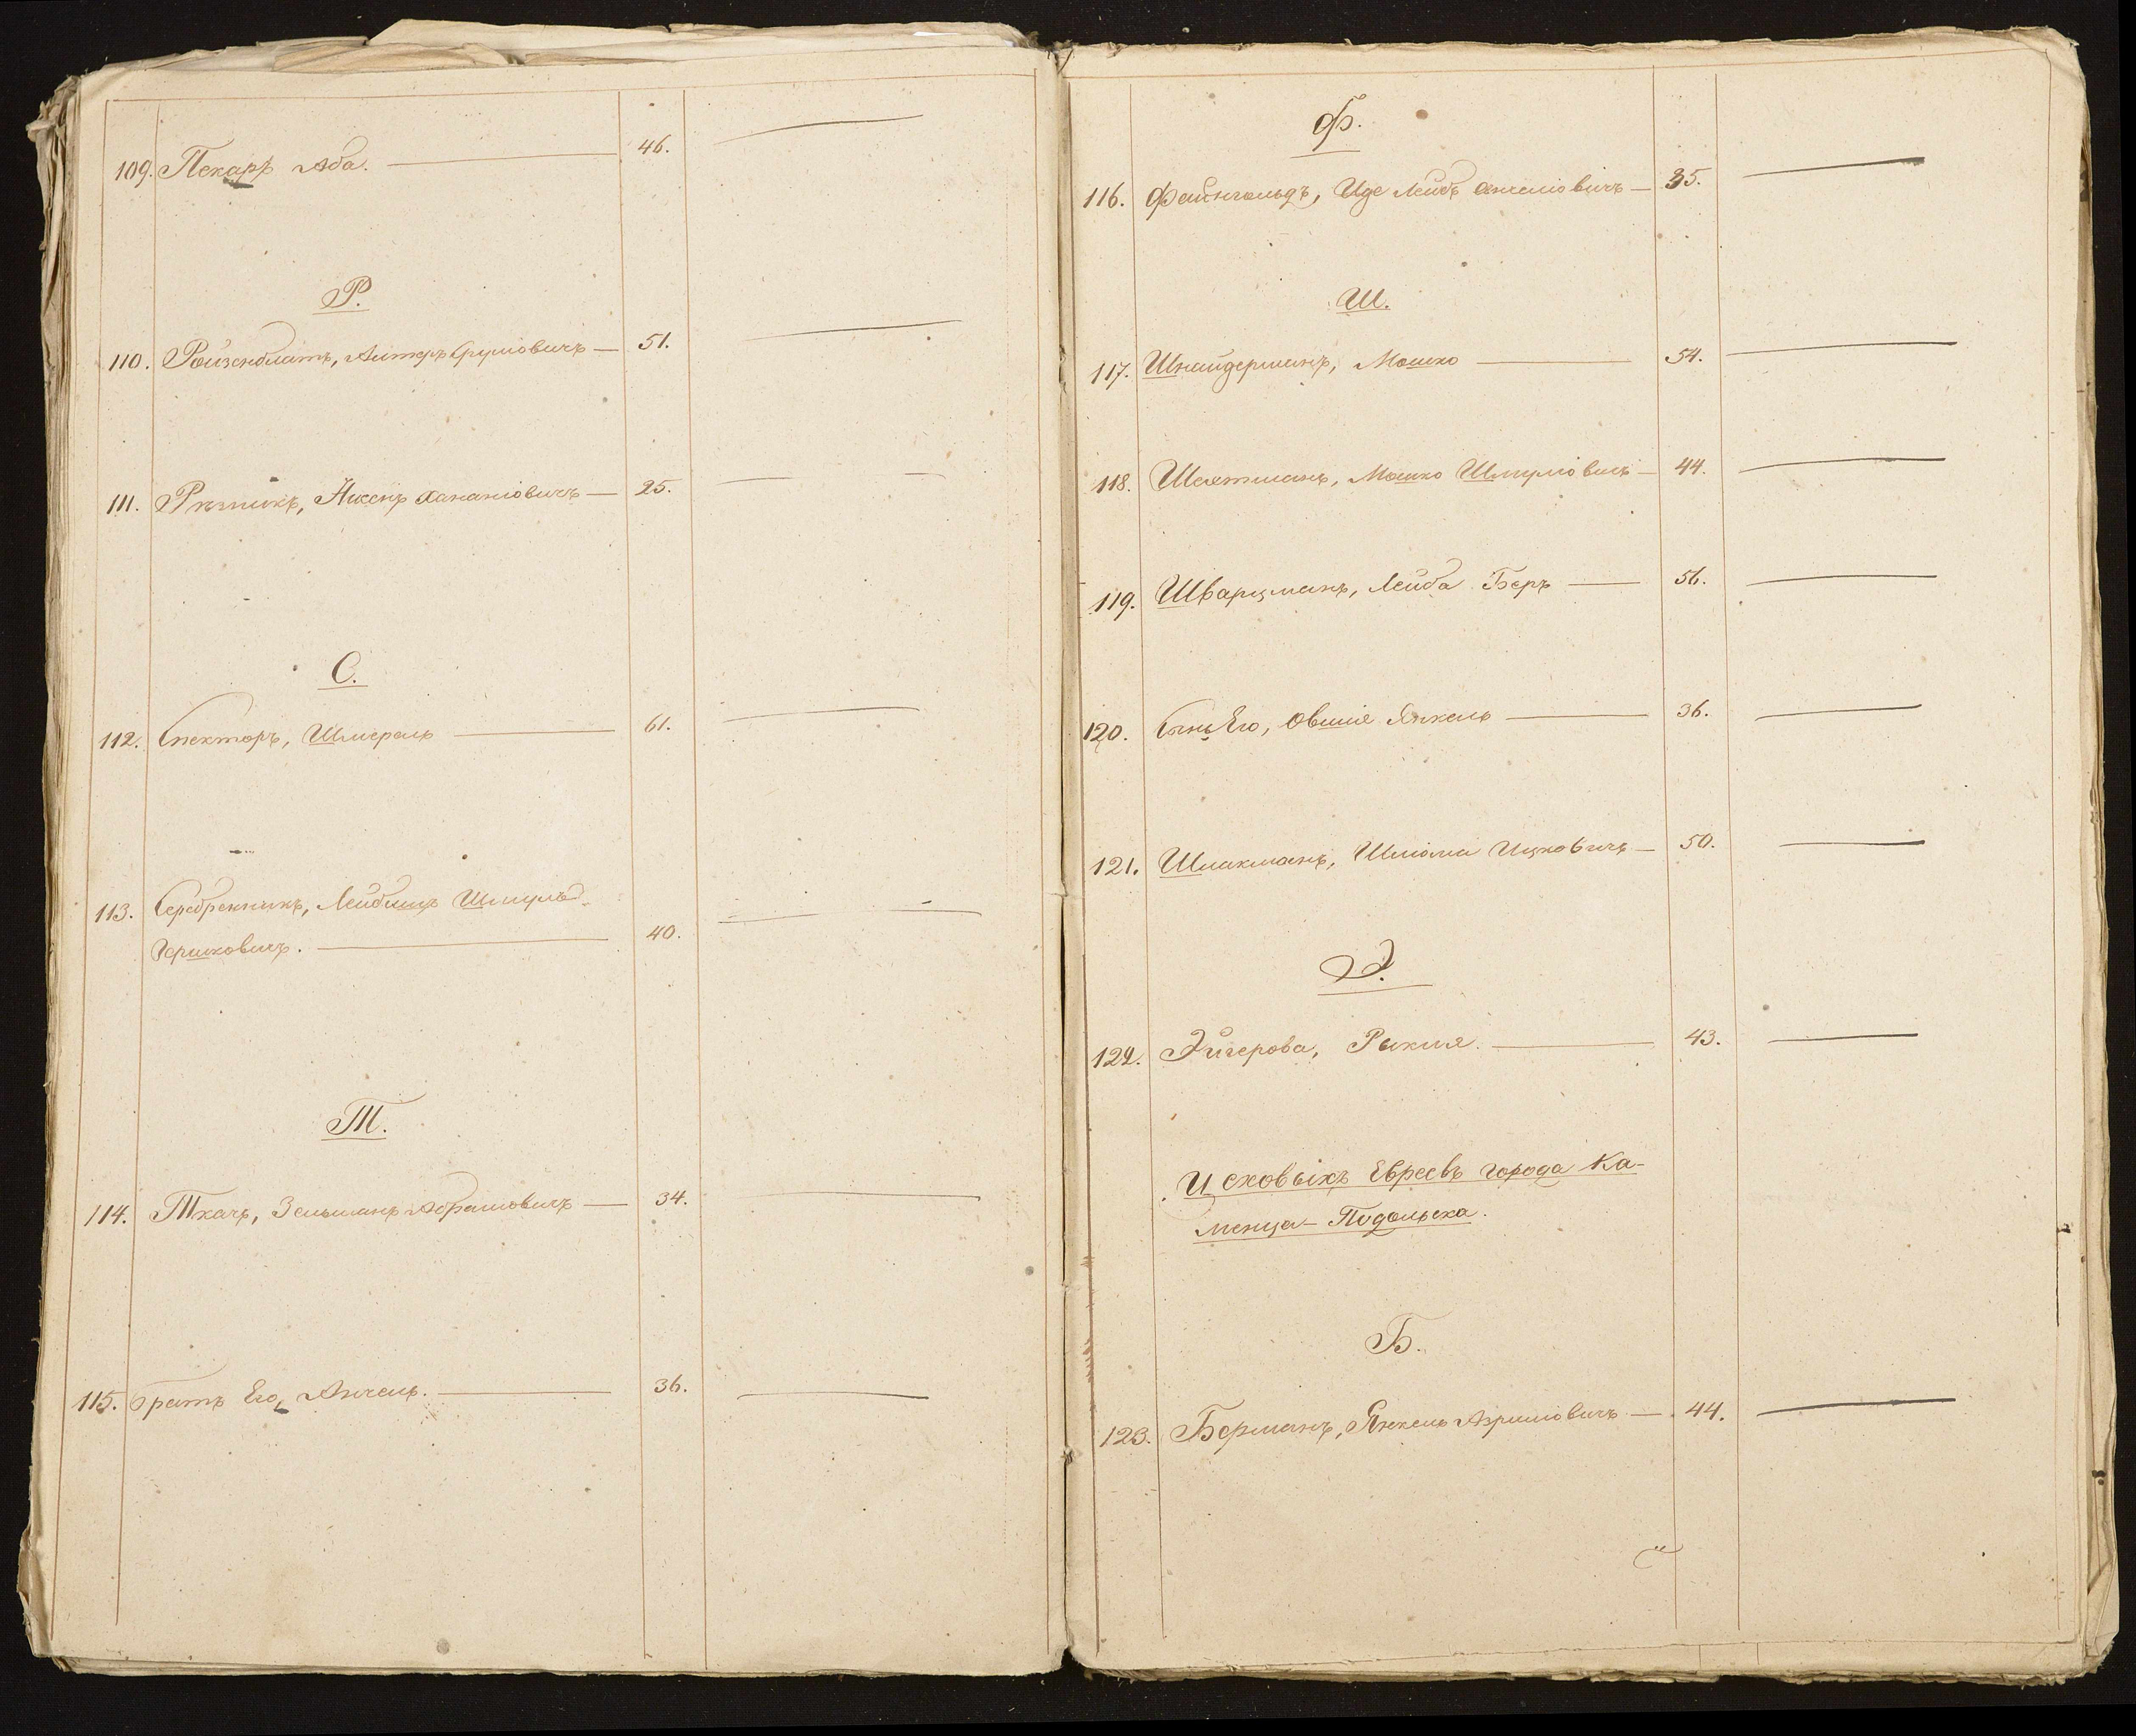 109. Пекарь Аба. 46.
Р.
110. Ройзенблитъ, Алтеръ Сруліовичъ 51.
111. Рѣзникъ, Нисенъ Хананіовичъ 25.
С.
112. Спекторъ, Шмераль 61.
113. Серебренникъ, Лейбишъ Шмуль
Гершковичъ. 40.
Т.
114. Ткачъ, Зельманъ Абрамовичъ 34.
115. Братъ Его, Анчель. 36.
Ф.
116. Файнгольдъ, Иде Лейбъ Анчеліовичъ 35.
Ш.
117. Шнайдерманъ, Мошко 54.
118. Шехтманъ, Мошко Шмуліовичъ 44.
119. Шварцманъ, Лейба Беръ 56.
120. Сынъ Его, Овшія Янкель 36.
121. Шмакманъ, Шліома Ицковичъ 50.
Э.
122. Эйгерова, Рыкля. 43.
Цеховыхъ Евреевъ города Ка-
менца-Подольска.
Б.
123. Берманъ, Янкель Азриліовичъ 44.